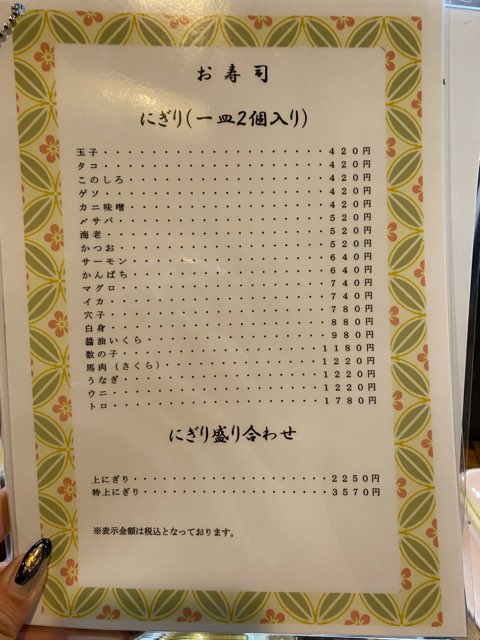 お寿司
にぎり(一皿2個入り)
玉子・・・・・・・・・・・・・・・・・・・420円
タコ・・・・・・・・・・・・・・・・・・・420円
このしろ・・・・・・・・・・・・・・・・・420円
ゲソ・・・・・・・・・・・・・・・・・・・420円
カニ味噌・・・・・・・・・・・・・・・・・420円
〆サバ・・・・・・・・・・・・・・・・・・520円
海老・・・・・・・・・・・・・・・・・・・520円
かつお・・・・・・・・・・・・・・・・・・520円
サーモン・・・・・・・・・・・・・・・・・640円
かんぱち・・・・・・・・・・・・・・・・・640円
マグロ・・・・・・・・・・・・・・・・・・740円
イカ・・・・・・・・・・・・・・・・・・・740円
穴子・・・・・・・・・・・・・・・・・・・780円
白身・・・・・・・・・・・・・・・・・・・880円
醤油いくら・・・・・・・・・・・・・・・・980円
数の子・・・・・・・・・・・・・・・・・・1180円
馬肉(さくら)・・・・・・・・・・・・・・1220円
うなぎ・・・・・・・・・・・・・・・・・・1220円
ウニ・・・・・・・・・・・・・・・・・・・1220円
トロ・・・・・・・・・・・・・・・・・・・1780円
にぎり盛り合わせ
上にぎり・・・・・・・・・・・・・・・・・2250円
特上にぎり・・・・・・・・・・・・・・・・3570円
※表示金額は税込となっております。